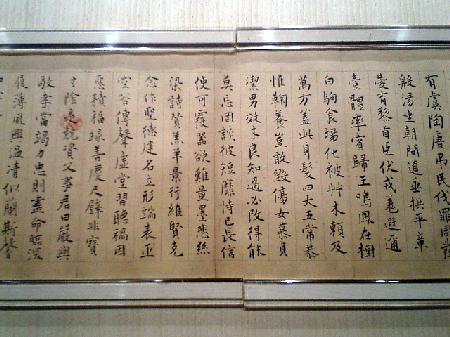 有虞陶唐弔民伐罪周發
殷湯坐朝問道垂拱平章
愛育黎首臣伏戎羌遐邇
壹體率賓歸王鳴鳳在樹
白駒食場化被艸木賴及
萬方蓋此身髮四大五常恭
惟鞠養豈敢毀傷女慕貞
潔男效才良知過必改得能
莫忘罔談彼短靡恃己長信
使可覆器欲難量墨悲絲
染詩讚羔羊景行維賢克
念作聖德建名立形端表正
空谷傳聲虛堂習聽禍因
惡積福緣善慶尺璧非寶
寸陰是競資父事君曰嚴與
敬孝當竭力忠則盡命臨深
履薄夙興溫凊似蘭斯馨